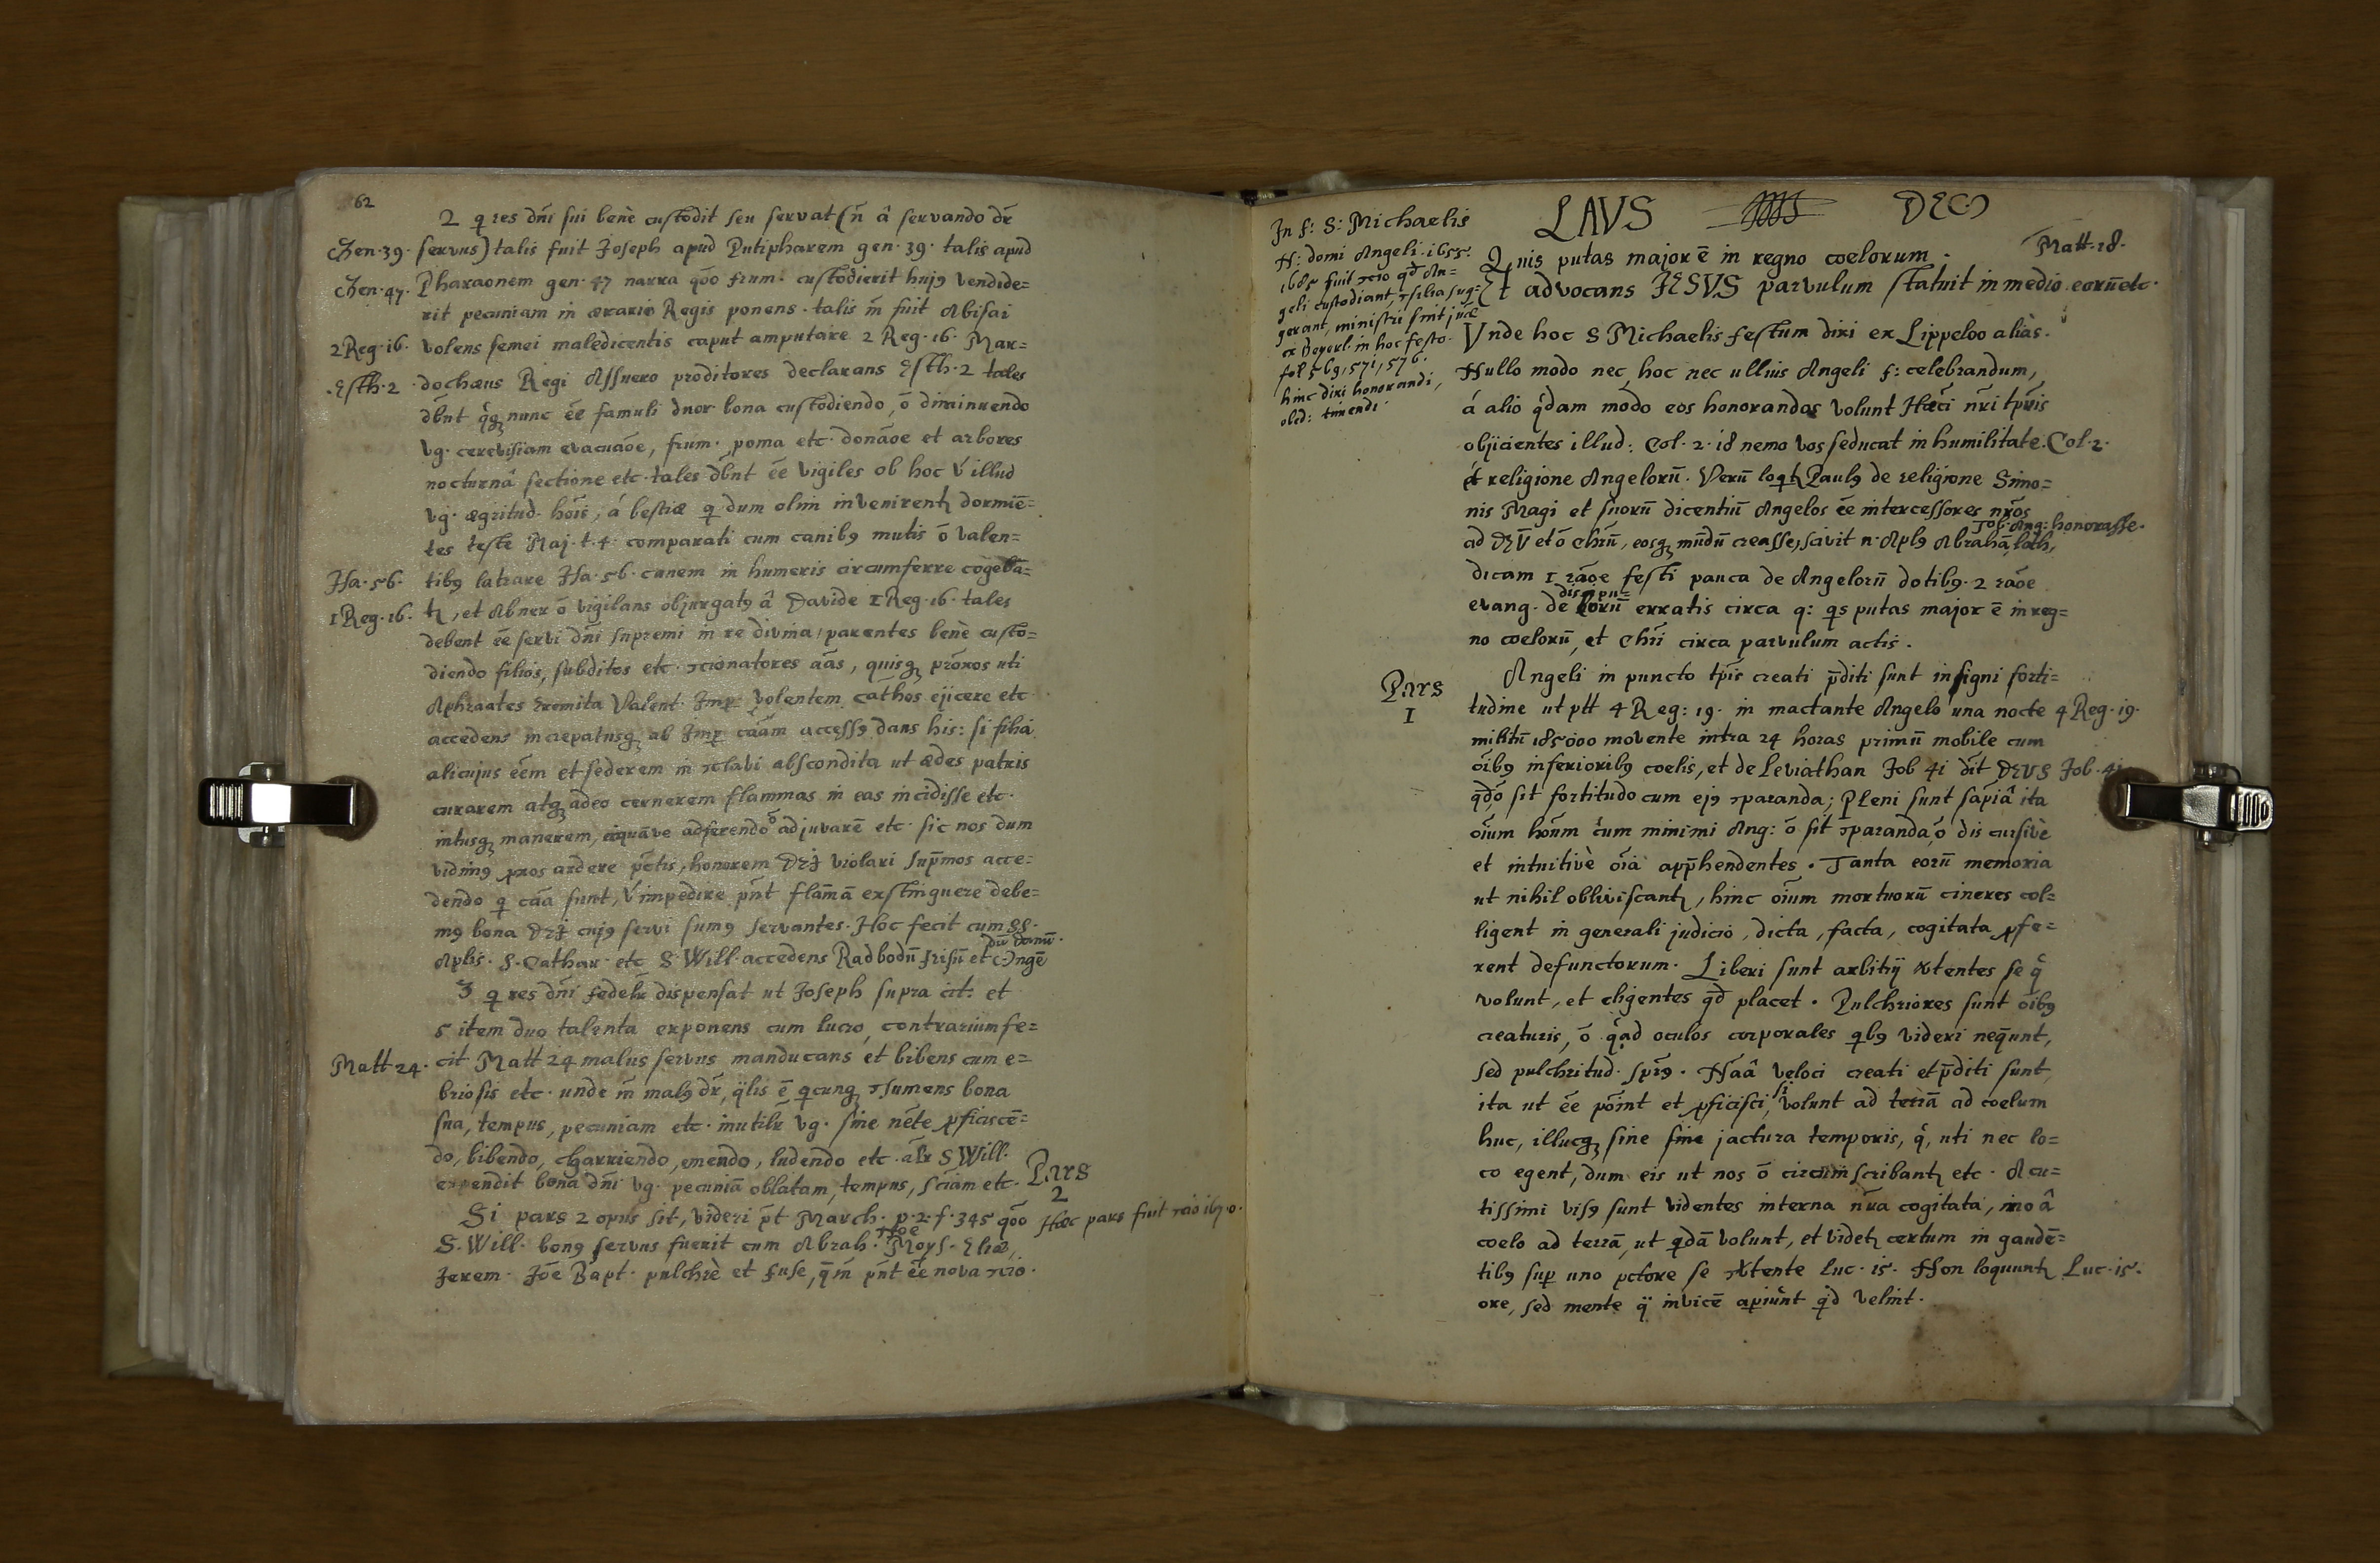 62
2 q res dñi sui benè custodit seu servat (ñ â servando dr̃
Gen. 39. servus) talis fuit Joseph apud Putipharem gen. 39. talis apud
Gen. 47. Pharaonem gen. 47 narra qõo frum. custodierit hujꝰ vendide=
rit pecuniam in ærario Regis ponens. talis m̃ fuit Abisai
2 Reg. 16. volens semei maledicentis caput amputare 2 Reg. 16. Mar=
Esth. 2 dochæus Regi Assuero proditores declarans Esth. 2 tales
db̃nt nunc ẽe famuli dnor. bona custodiendo, õ diminuendo
vg. cerevisiam evacuãoe, frum. poma etc. donãoe et arbores
nocturnâ sectione etc. tales db̃nt ẽe vigiles ob hoc v́ illud
vg. ægritud. hõis, á bestiæ q dum olim invenirentꝛ dormiẽ=
tes teste Maj. t. 4. comparati cum canibꝰ mutis õ valen=
Isa. 56. tibꝰ latrare Isa. 56. canem in humeris circumferre cogebã=
1 Reg. 16. tꝛ, et Abner õ vigilans objurgatꝰ â Davide 1 Reg. 16. tales
debent ẽe servi dñi supremi in re divina, parentes benè custo=
diendo filios, subditos etc. ꝯcionatores ãas, quisqꝫ prõxos uti
Aphraates Eremita Valent. Imp. volentem cathos ejicere etc.
accedens increpatusqꝫ ab Imp. cãam accessꝰ dans his: si filia
alicujus ẽem et sederem in ꝯclavi abscondita ut ædes patris
curarem atqꝫ adeo cernerem flammas in eas incidisse etc.
intusqꝫ manerem, aquãve adferendo õ adjuvarẽ etc. sic nos dum
vidimꝰ pxos ardere pctis, honorem DEJ violari supr̃mos acce=
dendo q cãa sunt, v́ impedire pñt flãmã exstinguere debe=
mꝰ bona DEJ cujꝰ servi sumꝰ servantes. Hoc fecit cum SS.
Aplis. S. Cathar. etc S. Will. accedens Radbodũ frisũ et Ongẽ
dũ danũ.
3 q res dñi fedelr̃ dispensat ut Joseph supra cit. et
5 item duo talenta exponens cum lucro, contrarium fe=
Matt 24. cit Matt 24 malus servus manducans et bibens cum e=
briosis etc. unde m̃ malꝰ dr̃, qlis ẽ qcunqꝫ ꝯsumens bona
sua, tempus, pecuniam etc. inutilr̃ vg. sine nẽte pficiscẽ=
do, bibendo, Garriendo, emendo, ludendo etc. alr̃ S Will.
expendit bona dñi vg. pecuniã oblatam, tempus, sciam etc.
Pars
2
Si pars 2 opus sit, videri pt March. p. 2. f. 345 qõo
Hæc pars fuit ꝯcio 1670.
S. Will. bonꝰ servus fuerit cum Abrah. Moys. Eliæ,
Noe
Jerem. Jõe Bapt. pulchrè et fuse, q̃m pñt ẽe nova ꝯcio.
In f: S: Michaelis
N: domi Angeli. 1655.
1685 fuit ꝯcio qd An=
geli custodiant, ꝯsilia sug=
gerant, ministri sint
ex Beyerl. in hoc festo.
fol 569, 571, 576.
hinc dixi honorandi,
obed: timendi.
LAVS DEO
Quis putas major ẽ in regno coelorum. Matt. 18.
Et advocans JESVS parvulum statuit in medio eorũ etc.
Vnde hoc S Michaelis festum dixi ex Lippeloo aliàs.
Nullo modo nec hoc nec ullius Angeli f: celebrandum,
á alio qdam modo eos honorandos volunt Hæci nr̃i tpris
objicientes illud: Col. 2. 18 nemo vos seducat in humilitate. Col. 2.
et religione Angelorũ. Verũ loqtꝛ Paulꝰ de religione Simo=
nis Magi et suorũ dicentiũ Angelos ẽe intercessores nr̃os
ad DEV̄ et õ Chrũ, eosqꝫ mũdũ creasse, scivit n. Aplꝰ Abrahã, Loth,
Tob. Ang: honorasse.
dicam 1 rãoe festi pauca de Angelorũ dotibꝰ. 2 rãoe
evang. de disipu=lorũ erratis circa q: qs putas major ẽ in reg=
no coelorũ, et Chri circa parvulum actis.
Pars
1
Angeli in puncto tpis creati pditi sunt insigni forti=
tudine ut ptt 4 Reg: 19. in mactante Angelo una nocte 4 Reg. 19.
militũ 185000 movente intra 24 horas primũ mobile cum
õibꝰ inferioribꝰ coelis, et de Leviathan Job 41 dit DEVS Job. 41
qdõ sit fortitudo cum ejꝰ ꝯparanda; Pleni sunt sapiâ ita
oĩum hoĩum cum minimi Ang: õ sit ꝯparanda, õ discursivè
et intuitivè oĩa appr̃hendentes. Tanta eorũ memoria
ut nihil obliviscantꝛ, hinc oĩum mortuorũ cineres col=
ligent in generali judicio, dicta, facta, cogitata pfe=
rent defunctorum. Liberi sunt arbitrij vtentes se q
volunt, et eligentes qd placet. Pulchriores sunt õibꝰ
creaturis, õ qad oculos corporales qbꝰ videri neq̃unt,
sed pulchritud. sprꝰ. Nãâ veloci creati et pditi sunt,
ita ut ẽe põint et pficisci, si volunt ad terrã ad coelum
huc, illucqꝫ sine sine jactura temporis, q, uti nec lo=
co egent, dum eis ut nos õ circumscribantꝛ etc. Acu=
tissimi visꝰ sunt videntes interna nr̃a cogitata, imo â
coelo ad terrã, ut qdã volunt, et videtꝛ certum in gaudẽ=
tibꝰ sup uno pctore se ꝯvtente Luc. 15. Non loquuntꝛ Luc. 15.
ore, sed mente q invicẽ apiunt qd velint.